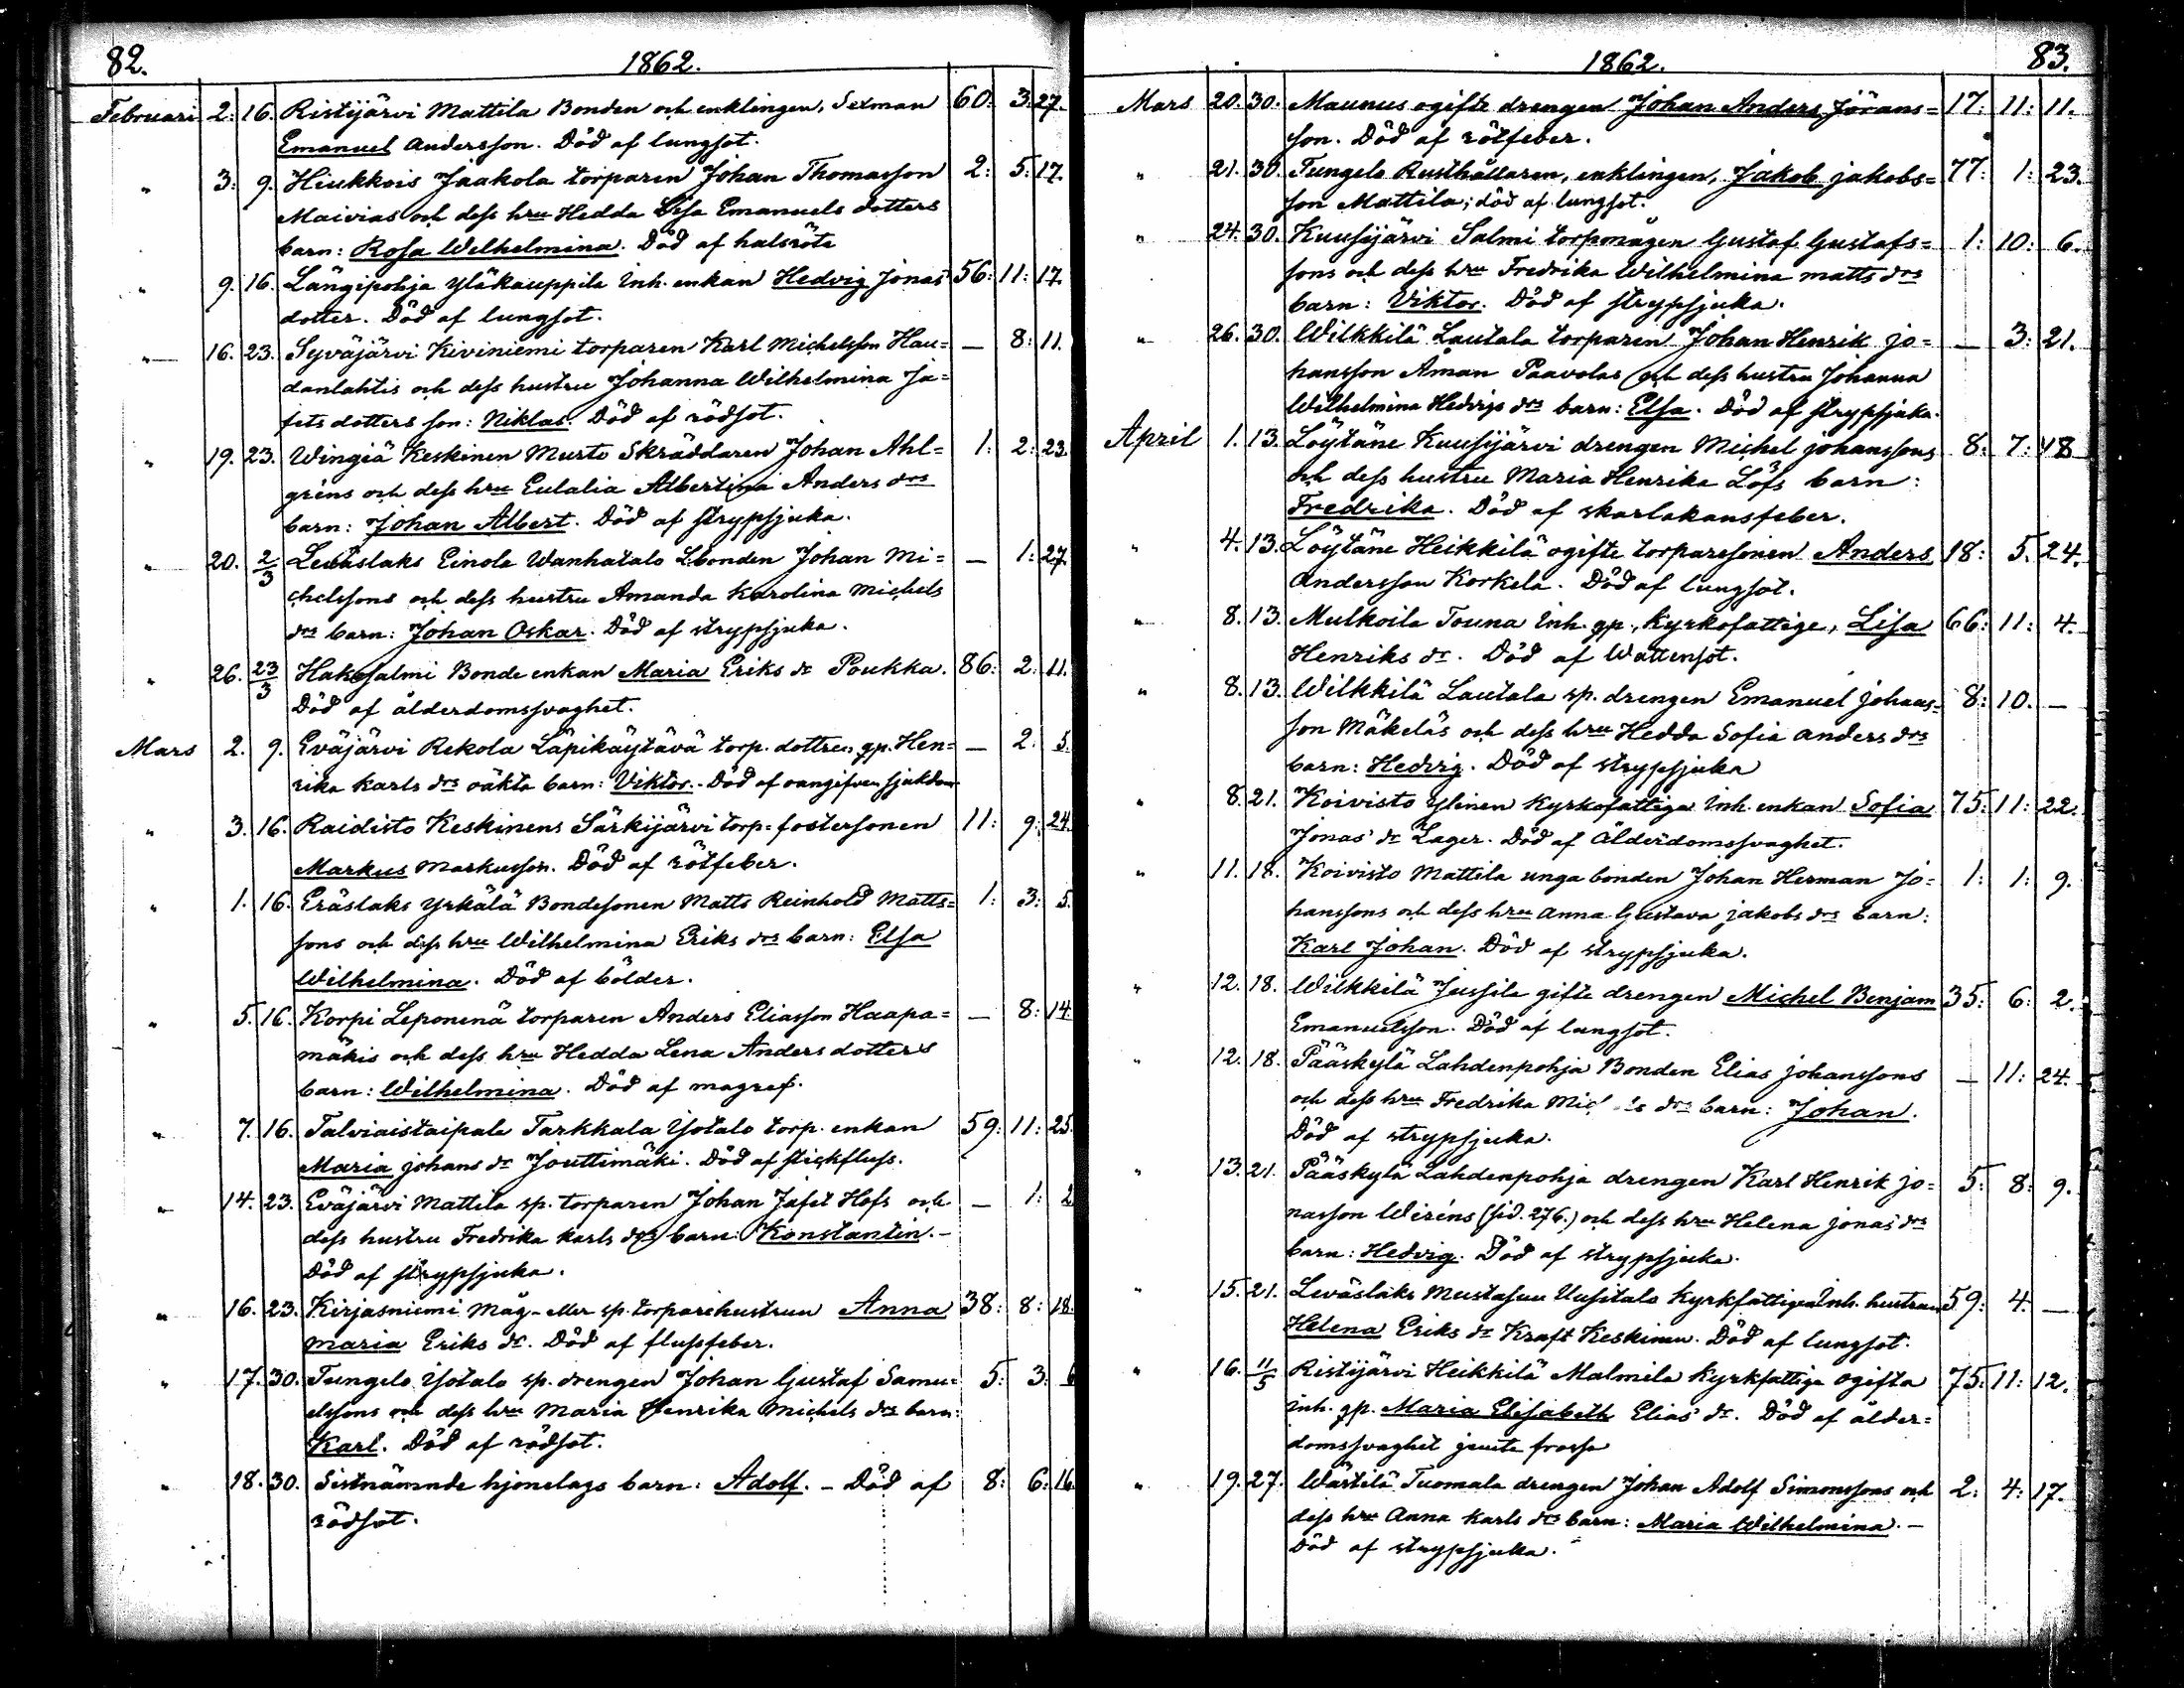 82. 1862.
Februari 2. 16. Ristijärvi Mattila Bonden och enklingen, Sexman 60. 3. 27.
Emanuel Andersson. Död af lungsot.
" 3. 9. Hiukkois Jaakola torparen Johan Thomasson 2: 5. 17.
Maivias och dess hru Hedda Lisa Emanuels dotters
barn: Rosa Welhelmina. Död af halsröte
" 9. 16. Längipohja Yläkauppila Inh. enkan Hedvig Jonas 56: 11: 17.
dotter. Död af lungsot.
" 16. 23. Syväjärvi Kiviniemi torparen Karl Michelsson Hau= — 8: 11.
danlahtis och dess hustru Johanna Wilhelmina Ja=
fets dotters son: Niklas. Död af rödsot.
" 19. 23. Wingiä Keskinen Musto Skräddaren Johan Ahl= 1: 2: 23.
gréns och dess hru Eulalia Albertina Anders drs
barn: Johan Albert. Död af strypsjuka.
" 20. 2/3 Leväslaks Einola Wanhatalo Lbonden Johan Mi= — 1: 27.
chelssons och dess hustru Amanda Karolina Michels
drs barn: Johan Oskar. Död af strypsjuka.
" 26. 23/3 Hakosalmi Bonde enkan Maria Eriks dr Poukka. 86: 2: 11.
Död af ålderdomssvaghet.
Mars 2. 9. Eväjärvi Rekola Läpikäytävä torp. dottren gp. Hen= — 2. 5.
rika Karls drs oäkta barn: Viktor. Död af oangifven sjukdom
" 3. 16. Raidisto Keskinens Särkijärvi torp. fostersonen 11: 9: 24.
Markus Markusson. Död af rötfeber.
" 1. 16. Eräslaks Yrkälä Bondesonen Matts Reinhold Matts= 1: 3: 5.
sons och dess hru Wilhelmina Eriks drs barn: Elsa
Wilhelmina. Död af bölder.
" 5. 16. Korpi Leponenä torparen Anders Eliasson Haapa= — 8: 14.
mäkis och dess hru Hedda Lena Anders dotters
barn: Wilhelmina. Död af magref.
" 7. 16. Talviaistaipale Tarkkala Yotalo torp. enkan 59: 11: 25.
Maria Johans dr Jouttimäki. Död af stickfluss.
" 14. 23. Eväjärvi Mattila sp. torparen Johan Jafet Hofs och — 1: 2
dess hustru Fredrika Karls drs barn: Konstantin. -
Död af strypsjuka.
" 16. 23. Kirjasniemi Mäg- sp. torparehustrun Anna 38: 8: 18.
Maria Eriks dr. Död af flussfeber.
" 17. 30. Tungelo Yotalo sp. drengen Johan Gustaf Samu= 5: 3: 6
elssons och dess hru Maria Henrika Michels drs barn:
Karl. Död af rödsot.
" 18. 30. Sistnämnde hjonelags barn: Adolf. - Död af 8: 6: 16.
rödsot.
1862. 83.
Mars 20. 30. Maunus ogifte drengen Johan Anders Jörans= 17: 11: 11.
son. Död af rötfeber.
" 21. 30. Tungelo Rusthållaren, enklingen, Jakob Jakobs= 77: 1: 23.
son Mattila; död af lungsot.
" 24. 30. Kuusijärvi Salmi torpmågen Gustaf Gustafs= 1: 10: 6.
sons och dess hru Fredrika Wilhelmina Matts drs
barn: Viktor. Död af strypsjuka.
" 26. 30. Wilkkilä Lautala torparen Johan Henrik Jo= — 3: 21.
hansson Åman Paavolas och dess hustru Johanna
Wilhelmina Hedvigs drs barn: Elsa. Död af strypsjuka.
April 1. 13. Löytäne Kuusijärvi drengen Michel Johanssons 8: 7: 18
och dess hustru Maria Henrika Löfs barn:
Fredrika. Död af skarlakansfeber.
" 4. 13. Löytäne Heikkilä ogifte torparesonen Anders 18: 5. 24.
Andersson Korkela. Död af lungsot.
" 8. 13. Mulkoila Touna Inh. gp., Kyrkofattige, Lisa 66: 11: 4.
Henriks dr. Död af Wattensot.
" 8. 13. Wilkkilä Lautala sp. drengen Emanuel Johans= 8: 10. —
son Mäkeläs och dess hru Hedda Sofia Anders drs
barn: Hedvig. Död af strypsjuka
" 8. 21. Koivisto Ylinen Kyrkofattige Inh. enkan Sofia 75: 11: 22.
Jonas' dr Lager. Död af Ålderdomssvaghet.
" 11. 18. Koivisto Mattila unga bonden Johan Herman Jo= 1: 1: 9.
hanssons och dess hru Anna Gustava Jakobs drs barn:
Karl Johan. Död af strypsjuka.
" 12. 18. Wilkkilä Jussila gifte drengen Michel Benjam 35: 6: 2.
Emanuelsson. Död af lungsot.
" 12. 18. Pääskylä Lahdenpohja Bonden Elias Johanssons — 11: 24.
och dess hru Fredrika drs barn: Johan.
Död af strypsjuka.
" 13. 21. Pääskylä Lahdenpohja drengen Karl Henrik Jo= 5: 8: 9.
nasson Wiréns (sid. 276.) och dess hru Helena Jonas' drs
barn: Hedvig. Död af strypsjuka.
" 15. 21. Leväslaks Mustasuu Uusitalo Kyrkfattiga Inh. hustrun 59: 4. —
Helena Eriks dr Kraft Keskinen. Död af lungsot.
" 16. 11/5 Ristijärvi Heikkilä Malmila Kyrkfattige ogifta 75: 11: 12.
inh. gp. Maria Elisabeth Elias' dr. Död af ålder=
domssvaghet jemte frossa
" 19. 27. Wärtilä Tuomala drengen Johan Adolf Simonssons och 2: 4: 17.
dess hru Anna Karls drs barn: Maria Wilhelmina. -
Död af strypsjuka.